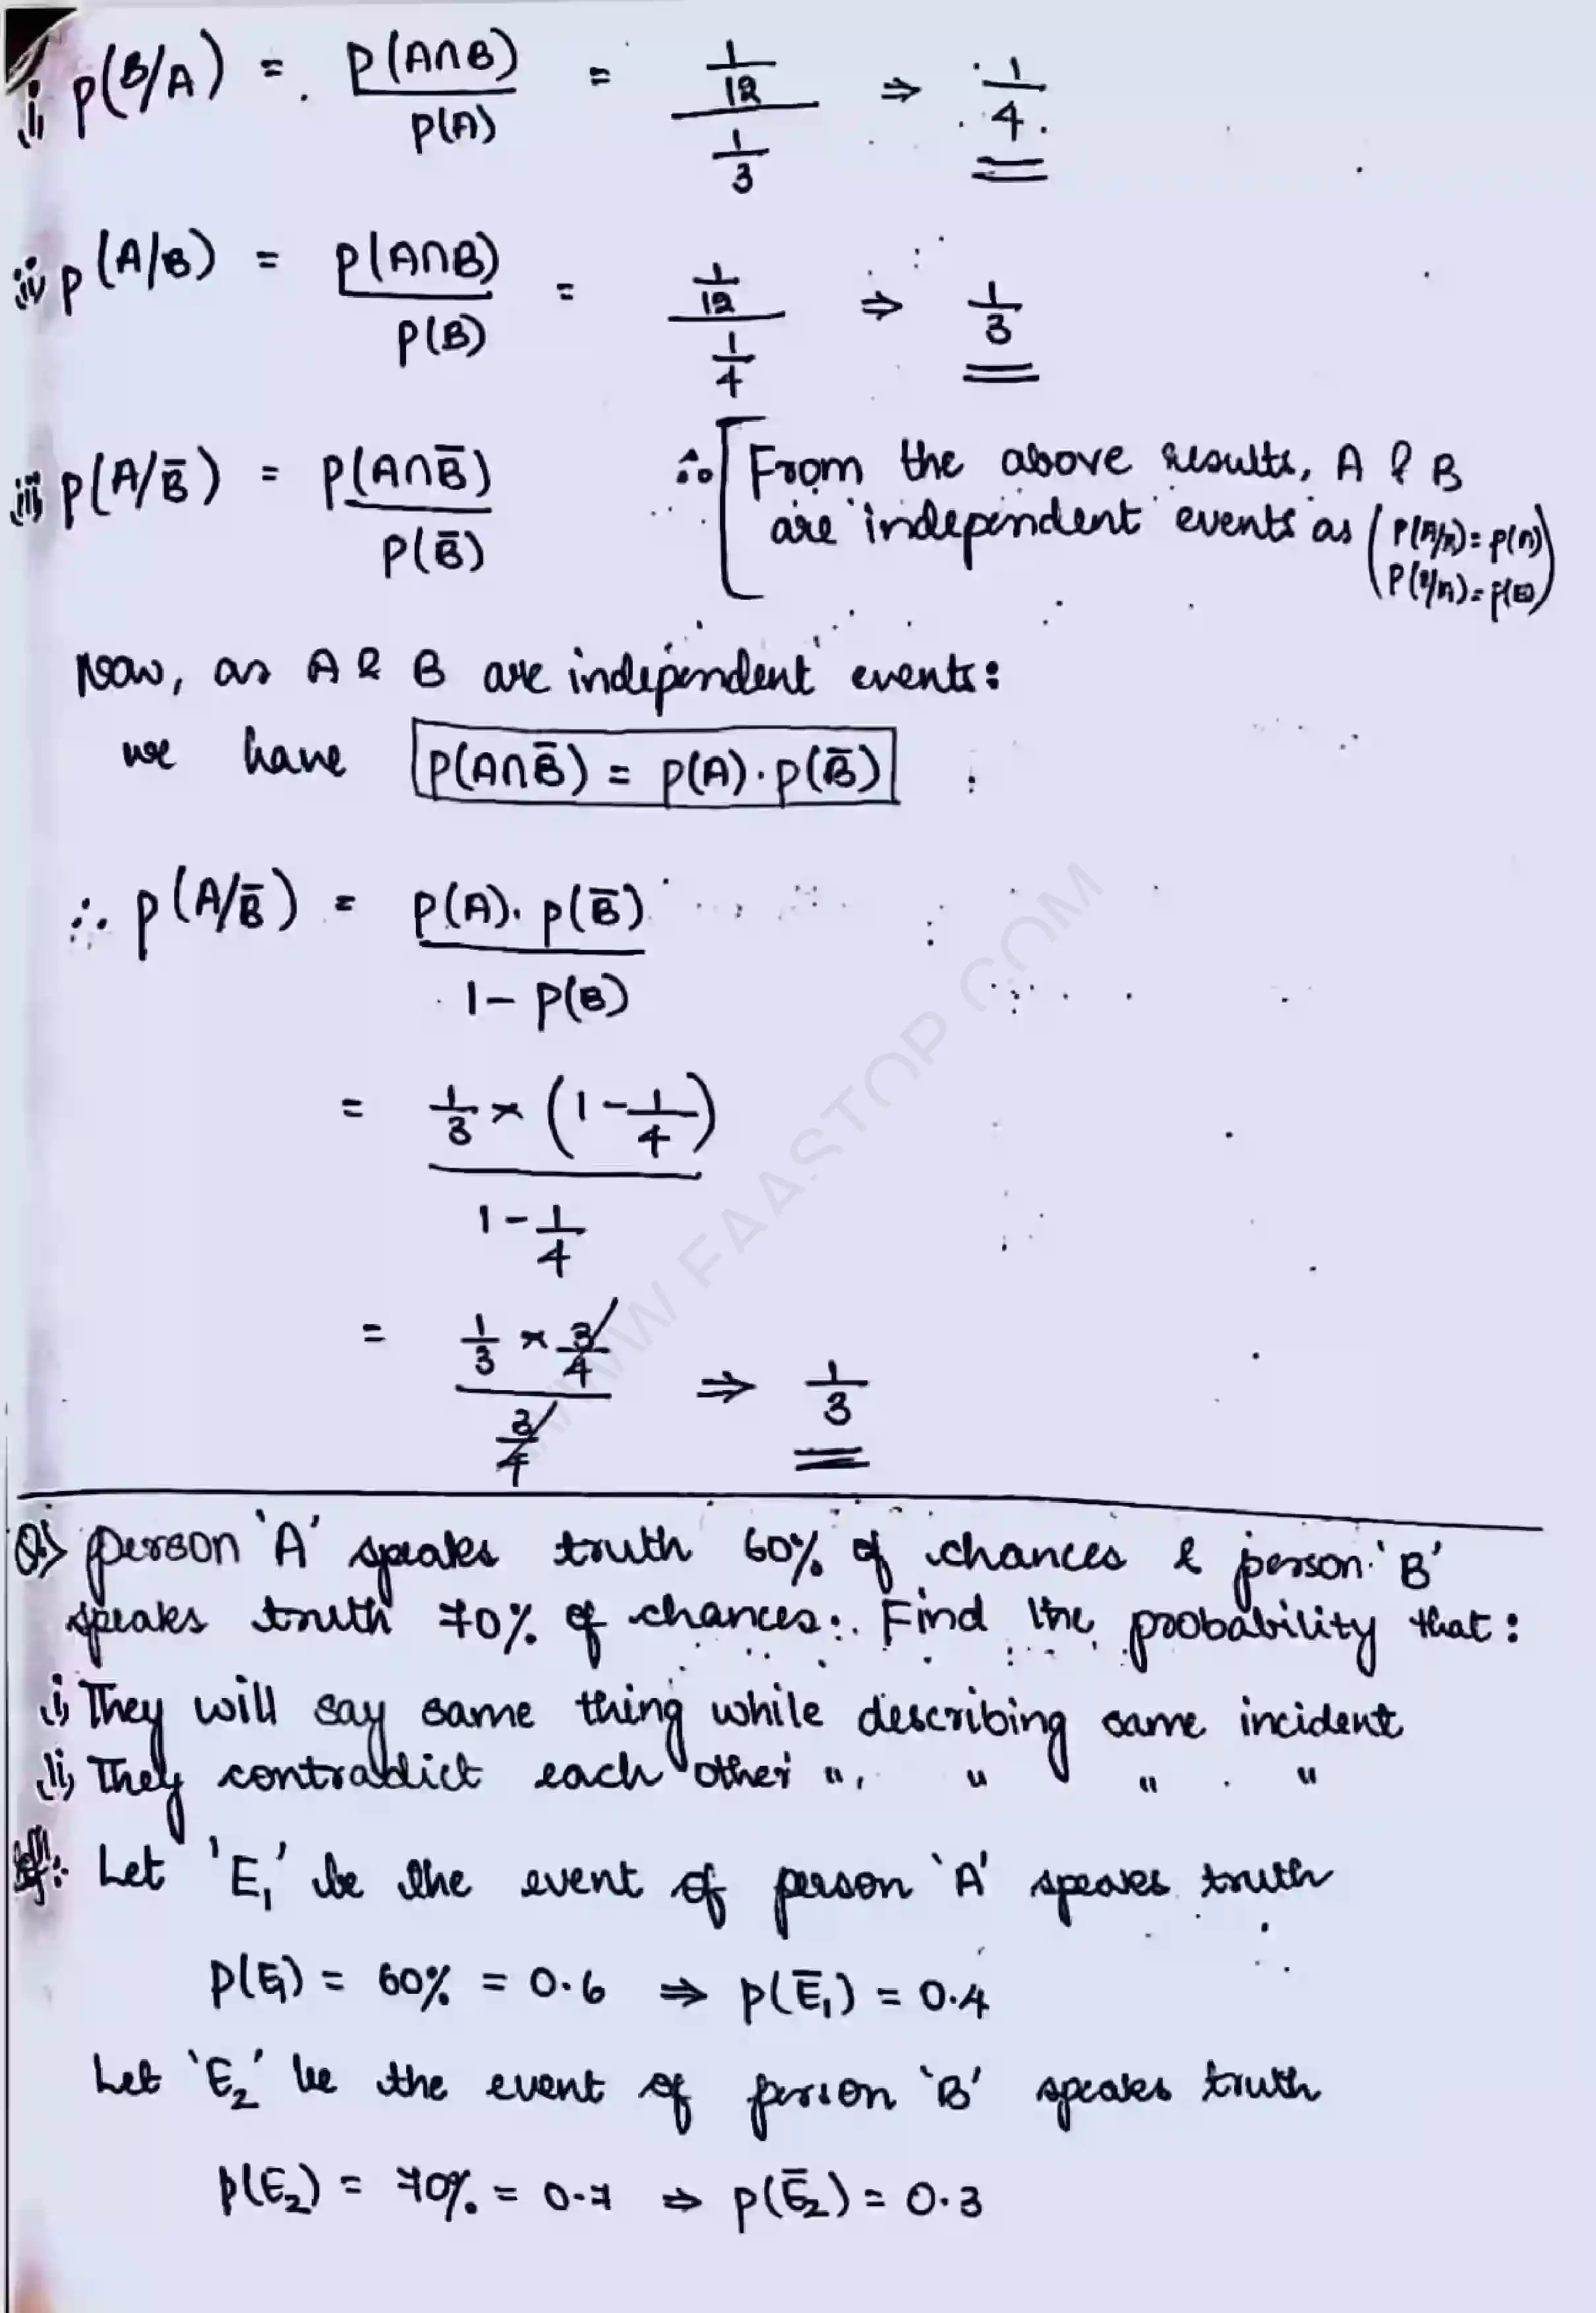 i, P(B/A) = P(A∩B) / P(A) = (1/12) / (1/3) ⇒ 1/4
ii, P(A/B) = P(A∩B) / P(B) = (1/12) / (1/4) ⇒ 1/3
iii, P(A/B̄) = P(A∩B̄) / P(B̄)
∴ [From the above results, A & B
are independent events as (P(A/B) = P(A)
P(B/A) = P(B))
Now, as A & B are independent events:
we have P(A∩B̄) = P(A)·P(B̄)
∴ P(A/B̄) = P(A)·P(B̄) / 1 - P(B)
= 1/3 × (1 - 1/4) / 1 - 1/4
= (1/3 × 3/4) / (3/4) ⇒ 1/3
WWW.FAASTOP.COM
Q.> person 'A' speaks truth 60% of chances & person 'B'
speaks truth 70% of chances. Find the probability that:
i, They will say same thing while describing same incident
ii, They contradict each other " " " "
Let 'E₁' be the event of person 'A' speaks truth
P(E₁) = 60% = 0.6 ⇒ P(Ē₁) = 0.4
Let 'E₂' be the event of person 'B' speaks truth
P(E₂) = 70% = 0.7 ⇒ P(Ē₂) = 0.3